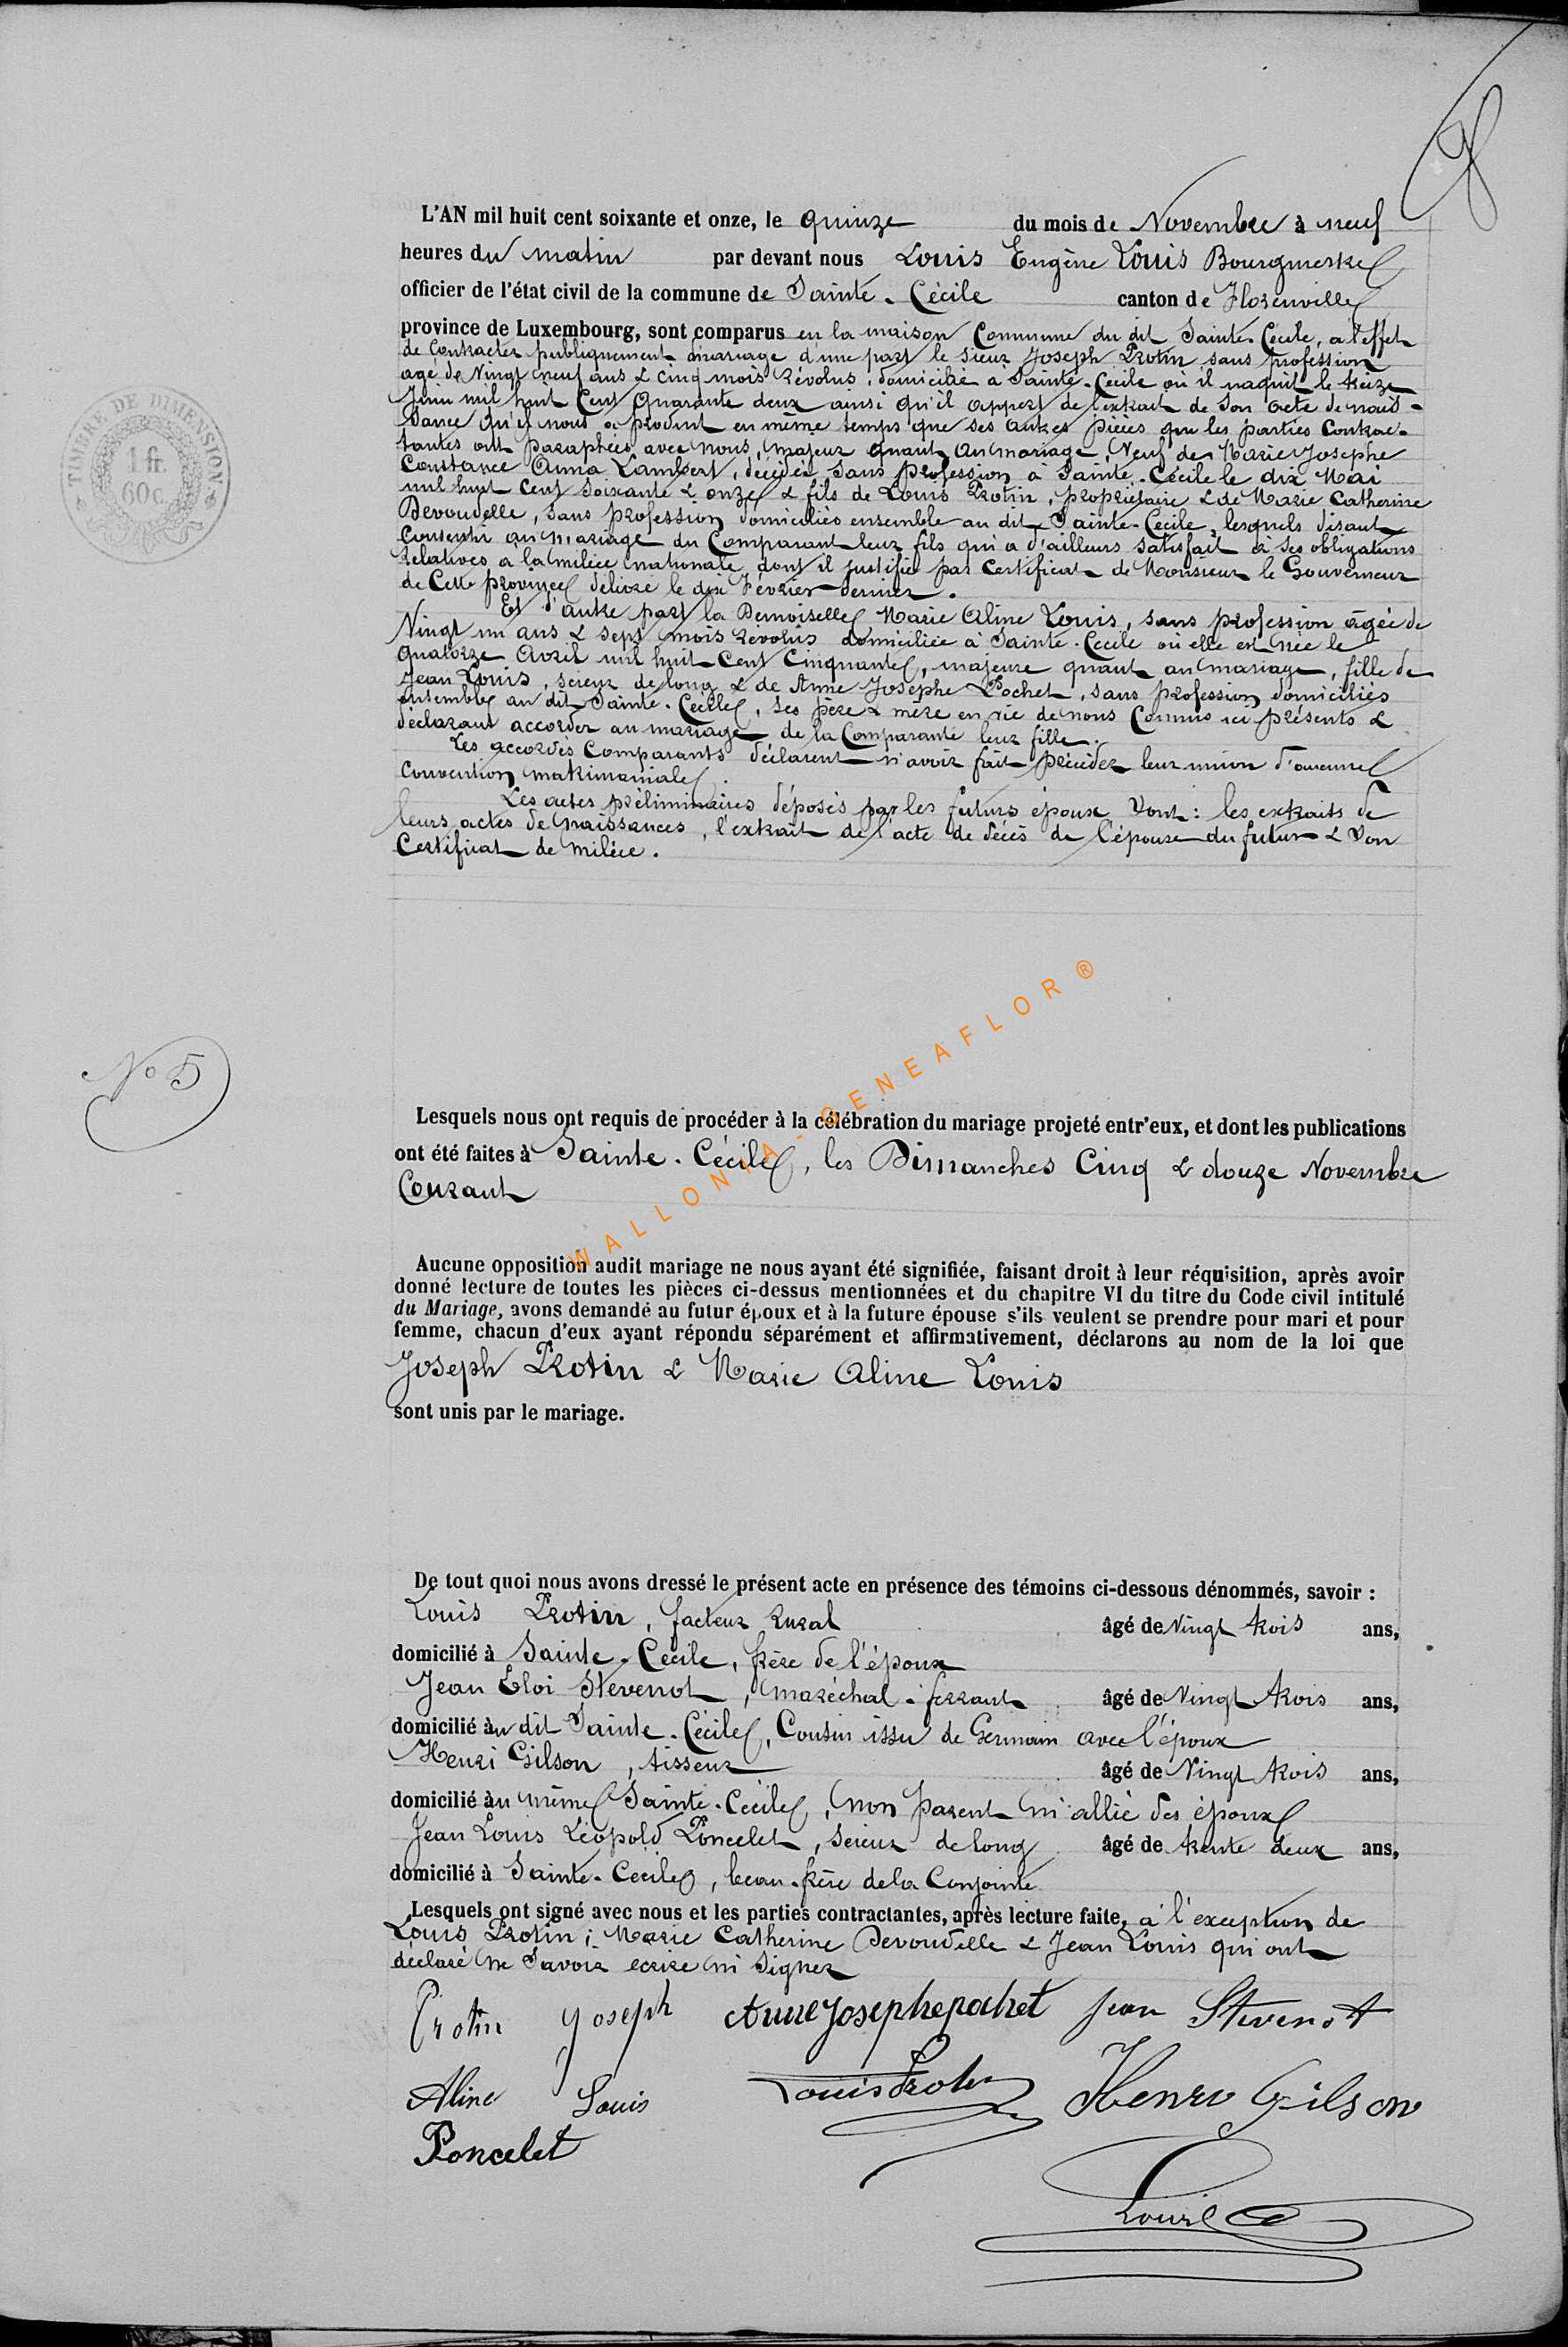 L'AN mil huit cent soixante et onze, le quinze du mois de Novembre à neuf
heures du matin par devant nous Louis Eugène Louis Bourgmestre
officier de l'état civil de la commune de Sainte-Cécile canton de Florenville
province de Luxembourg, sont comparus en la maison Commune du dit Sainte-Cécile, a l'effet
de Contracter publiquement mariage d'une part le sieur Joseph Protin sans profession
agé de Vingt neuf ans & cinq mois révolus, domicilié à Sainte-Cécile où il naquit le treize
Juin mil huit Cent Quarante deux ainsi qu'il appert de l'extrait de son acte de nais-
sance qu'il nous a produit en même temps que ses autres pièces que les parties Contrac-
tantes ont paraphées avec nous, majeur quant au mariage, Veuf de Marie Josephe
Constance Anna Lambert, décédée sans profession à Sainte-Cécile le dix Mai
mil huit Cent Soixante & onze & fils de Louis Protin, propriétaire & de Marie Catherine
Devoudelle, sans profession domiciliés ensemble au dit Sainte-Cécile, lesquels disant
Consentir au mariage du Comparant leur fils qui a d'ailleurs satisfait à ses obligations
relatives a la milice nationale dont il justifie par certificat de Monsieur le Gouverneur
de Cette province délivré le dix Février dernier.
Et d'autre part la Demoiselle Marie Aline Louis, sans profession âgée de
Vingt un ans & sept mois révolus domiciliée à Sainte-Cécile où elle est née le
quatorze Avril mil huit Cent Cinquante, majeure quant au mariage, fille de
Jean Louis, scieur de long & de Anne Josephe Pochet, sans profession domiciliés
ensemble au dit Sainte-Cécile, ses père & mère en vie de nous Connus ici présents &
déclarant accorder au mariage de la Comparante leur fille.
Les accordés Comparants déclarent n'avoir fait précéder leur union d'aucune
Convention matrimoniale.
Les actes préliminaires déposés par les futurs époux sont: les extraits de
leurs actes de naissances, l'extrait de l'acte de décès de l'épouse du futur & son
Certificat de milice.
N° 5
Lesquels nous ont requis de procéder à la célébration du mariage projeté entr'eux, et dont les publications
ont été faites à Sainte-Cécile, les Dimanches Cinq & douze Novembre
Courant
Aucune opposition audit mariage ne nous ayant été signifiée, faisant droit à leur réquisition, après avoir
donné lecture de toutes les pièces ci-dessus mentionnées et du chapitre VI du titre du Code civil intitulé
du Mariage, avons demandé au futur époux et à la future épouse s'ils veulent se prendre pour mari et pour
femme, chacun d'eux ayant répondu séparément et affirmativement, déclarons au nom de la loi que
Joseph Protin & Marie Aline Louis
sont unis par le mariage.
De tout quoi nous avons dressé le présent acte en présence des témoins ci-dessous dénommés, savoir :
Louis Protin, facteur rural âgé de Vingt trois ans,
domicilié à Sainte-Cécile, frère de l'époux
Jean Eloi Stevenot, maréchal-ferrant âgé de Vingt trois ans,
domicilié au dit Sainte-Cécile, Cousin issu de Germain avec l'époux
Henri Gilson, tisseur âgé de Vingt trois ans,
domicilié au même Sainte-Cécile, non parent ni allié des époux
Jean Louis Léopold Poncelet, scieur de long âgé de trente deux ans,
domicilié à Sainte-Cécile, beau-frère de la Conjointe
Lesquels ont signé avec nous et les parties contractantes, après lecture faite, à l'exception de
Louis Protin; Marie Catherine Devoudelle & Jean Louis qui ont
déclaré ne Savoir écrire ni signer
Protin Joseph Anne josephe pochet jean Stevenot
Aline Louis Louis Protin Henri Gilson
Poncelet
Louis
TIMBRE DE DIMENSION
1 fr.
60 c.
WALLONIA-GENEAFLOR ®